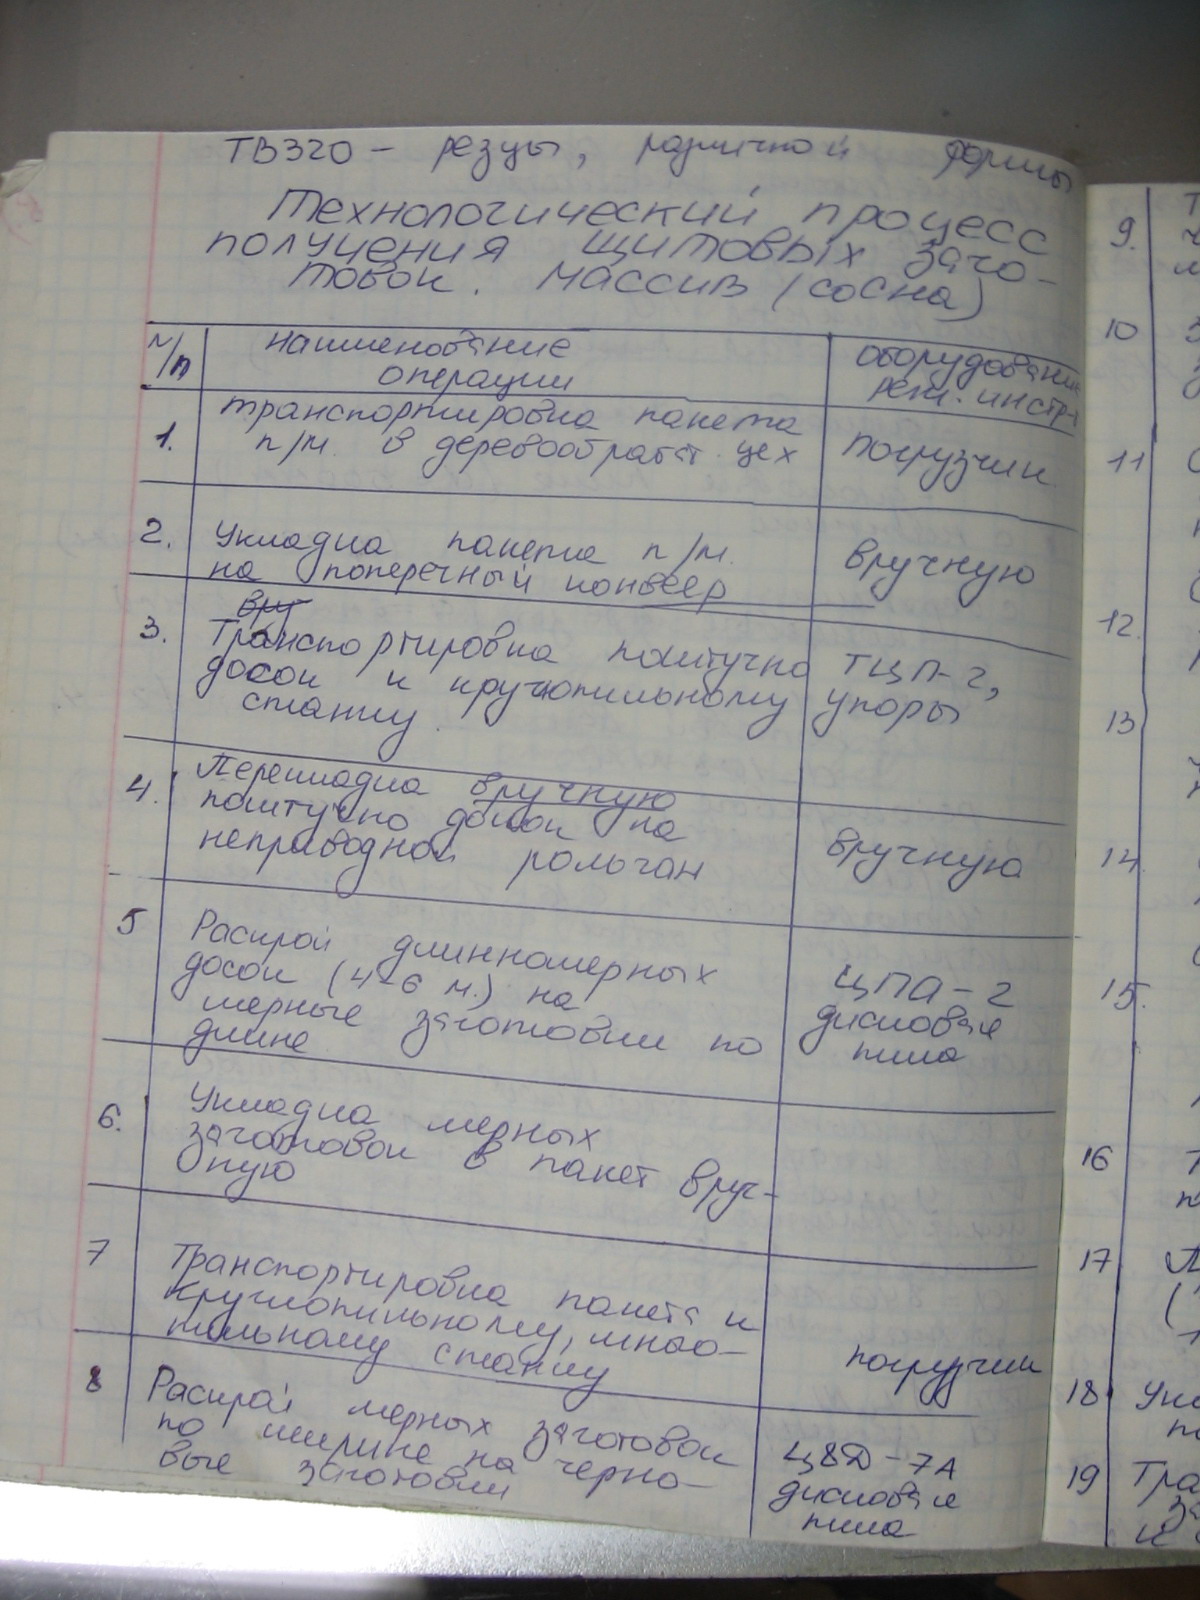 ТВ320 - резцы, различной формы
Технологический процесс
получения щитовых заго-
товок. Массив (сосна)
№/п
наименование
операции
оборудование
реж. инстр-т
1.
транспортировка пакета
п/м. в деревообработ. цех
погрузчик
2.
Укладка пакета п/м.
на поперечный конвеер
вручную
вру
3.
Транспортировка поштучно
досок к круглопильному
станку.
ТЦП-2,
упоры
4.
Перекладка вручную
поштучно досок на
неприводной рольган
вручную
5
Раскрой длинномерных
досок (4-6 м.) на
мерные заготовки по
длине
ЦПА-2
дисковая
пила
6.
Укладка мерных
заготовок в пакет вруч-
ную
7
Транспортировка пакета к
круглопильному, много-
пильному станку
погрузчик
8
Раскрой мерных заготовок
по ширине на черно-
вые заготовки
Ц8Д-7А
дисковая
пила
9.
10
11
12.
13
14
15.
16
17
18
19